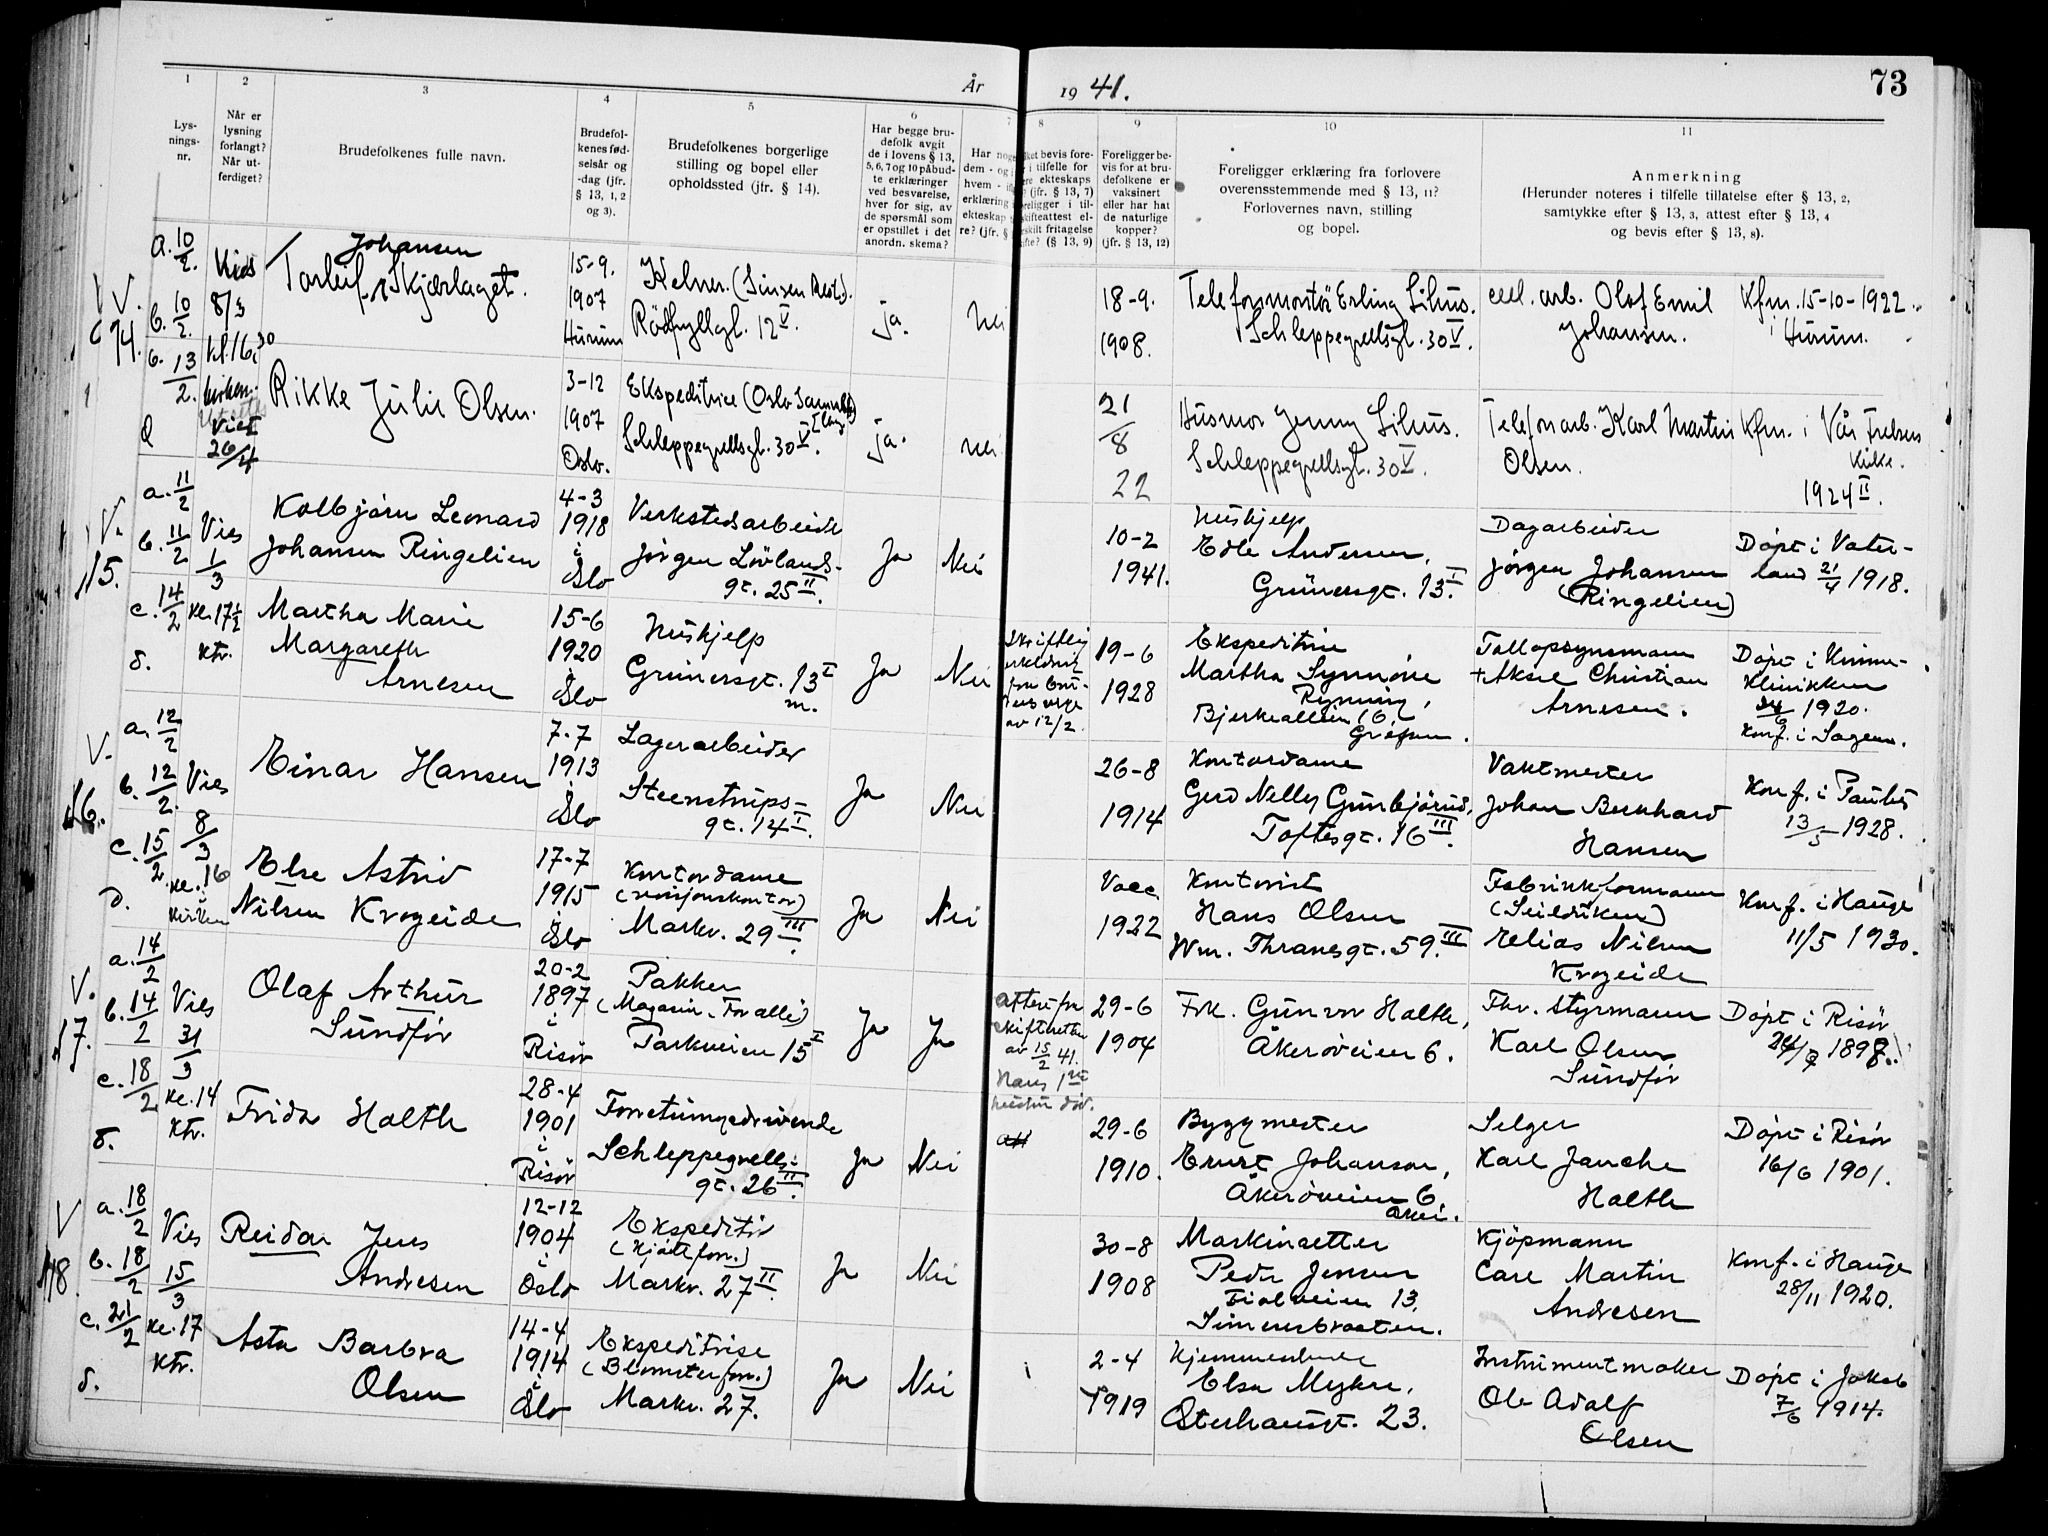 År 1941. 73
1 2 3 4 5 6 7 8 9 10 11
Lys-
nings-
nr.
Når er
lysning
forlangt?
Når ut-
ferdiget?
Brudefolkenes fulle navn.
Brudefol-
kenes fød-
selsår og
-dag (jfr.
§ 13, 1, 2
og 3).
Brudefolkenes borgerlige
stilling og bopel eller
opholdssted (jfr. § 14).
Har begge bru-
defolk avgit
de i lovens § 13,
5, 6, 7 og 10 påbud-
te erklæringer
ved besvarelse,
hver for sig, av
de spørsmål som
er opstillet i det
anordn. skema?
Har noge
dem - og i
hvem -
erklæring
ekteskap
re? (jfr. §
ket bevis fore-
i tilfelle for
re ekteskaps
? (jfr. § 13, 7)
religger i til-
skifteattest el-
rskilt fritagelse
ifte? (§ 13, 9)
Foreligger be-
vis for at bru-
defolkene er
vaksinert
eller har hat
de naturlige
kopper?
(jfr. § 13, 12)
Foreligger erklæring fra forlovere
overensstemmende med § 13, 11?
Forlovernes navn, stilling
og bopel.
Anmerkning
(Herunder noteres i tilfelle tillatelse efter § 13, 2,
samtykke efter § 13, 3, attest efter § 13, 4
og bevis efter § 13, 8).
V. 14.
a. 10/2.
b. 10/2.
c. 13/2.
Vies
8/3
kl. 16.30
kirken.
Viet
26/4
Johansen
Torleif Skjærlaget.
15-9.
1907
Hurum
Kelner. (Sinsen Rest).
Rödfyllgt. 12 V.
ja.
nei
18-9.
1908.
Telefonmontör Erling Lihus.
Schleppegrellsgt. 30 V.
arb. Olaf Emil
Johansen.
Kfm. 15-10-1922.
i Hurum.
Rikke Julie Olsen.
3-12
1907
Oslo.
Ekspeditrice (Oslo Samvirkelag)
Schleppegrellsgt. 30 V.
ja.
nei
21/8
22
Husmor Jenny Lihus.
Schleppegrellsgt. 30 V.
Telefonarb. Karl Martin
Olsen.
Kfm. i Vår Frelsers
Kirke.
1924 II.
V. 15.
a. 11/2
b. 11/2
c. 14/2
d.
Vies
1/3
kl. 17 1/2
ktr.
Kolbjørn Leonard
Johansen Ringelien
4-3
1918
i
Oslo
Verkstedsarbeider
Jørgen Løvlands-
gt. 25 II.
Ja
Nei
10-2
1941.
Hushjelp
Edle Andersen,
Grünersgt. 13 I.
Dagarbeider
Jørgen Johansen
(Ringelien)
Døpt i Vater-
land 21/4 1918.
Martha Marie
Margareth
Arnesen
15-6
1920
i
Oslo
Hushjelp
Grünersgt. 13 I
m.
Ja
Nei
Skriftlig
erklæring
fra
av 12/2.
19-6
1928
Ekspeditrise
Martha Synnøve
Ryning,
Bjerkealleen 16,
Grefsen.
Tollopsynsmann
+ Aksel Christian
Arnesen.
Døpt i Kvinne-
klinikken
1920.
Konf. i Sagene.
V. 16.
a. 12/2
b. 12/2.
c. 15/2.
d.
Vies
8/3
kl. 16
i
kirken
Einar Hansen
7-7
1913
i
Oslo
Lagerarbeider
Steenstrups-
gt. 14 I.
Ja
Nei
26-8
1914
Kontordame
Gerd Nelly Gunbjørud,
Toftesgt. 16 III.
Vaktmester
Johan Bernhard
Hansen
Konf. i Paulus
13/5 1928.
Else Astrid
Nilsen Krogeide
17-7
1915
i
Oslo
Kontordame
(revisjonskontor)
Markv. 29 III.
Ja
Nei
Vacc.
1922
Kontorist
Hans Olsen
Wm. Thranesgt. 59. III
Fabrikkformann
(Seilduken)
Elias Nilsen
Krogeide
Konf. i Hauge
11/5 1930.
V. 17.
a. 14/2
b. 14/2
c. 18/2
d.
Vies
31/3
kl. 14
ktr.
Olaf Arthur
Sundfør
20-2
1897
i
Risør
Pakker
(Magasin „For alle")
Parkveien 15 I
Ja
Ja
Attest fra
skifteretten
av 15/2 41.
Hans 1ste
hustru død.
29-6
1904
Frk. Gunvor Holth,
Åkerøveien 6.
Fhv. styrmann
Karl Olsen
Sundfør
Døpt i Risør
1897.
Frida Holth
28-4
1901
i
Risør
Forretningsdrivende
Schleppegrells-
gt. 26 II.
Ja
Nei
29-6
1910.
Byggmester
Ernst Johansen,
Åkerøveien 6.
Selger
Karl Jancke
Holth
Døpt i Risør
16/6 1901.
V 18.
a. 18/2
b. 18/2
c. 21/2
d.
Vies
15/3
kl. 17
ktr.
Reidar Jens
Andresen
12-12
1904
i
Oslo
Ekspeditør
(Kjøttforr.)
Markv. 27 II.
Ja
Nei
30-8
1908
Maskinsetter
Peder Jensen
Fiolveien 13,
Simensbraaten.
Kjøpmann
Carl Martin
Andresen
Konf. i Hauge
28/11 1920.
Asta Barbra
Olsen
14-4
1914
i
Oslo
Ekspeditrise
(Blomsterforr.)
Markv. 27.
Ja
Nei
2-4
1919
Hjemmeværende
Elsa Myhre,
Osterhausgt. 23.
Instrumentmaker
Ole Adolf
Olsen
Døpt i Jakob
7/6 1914.